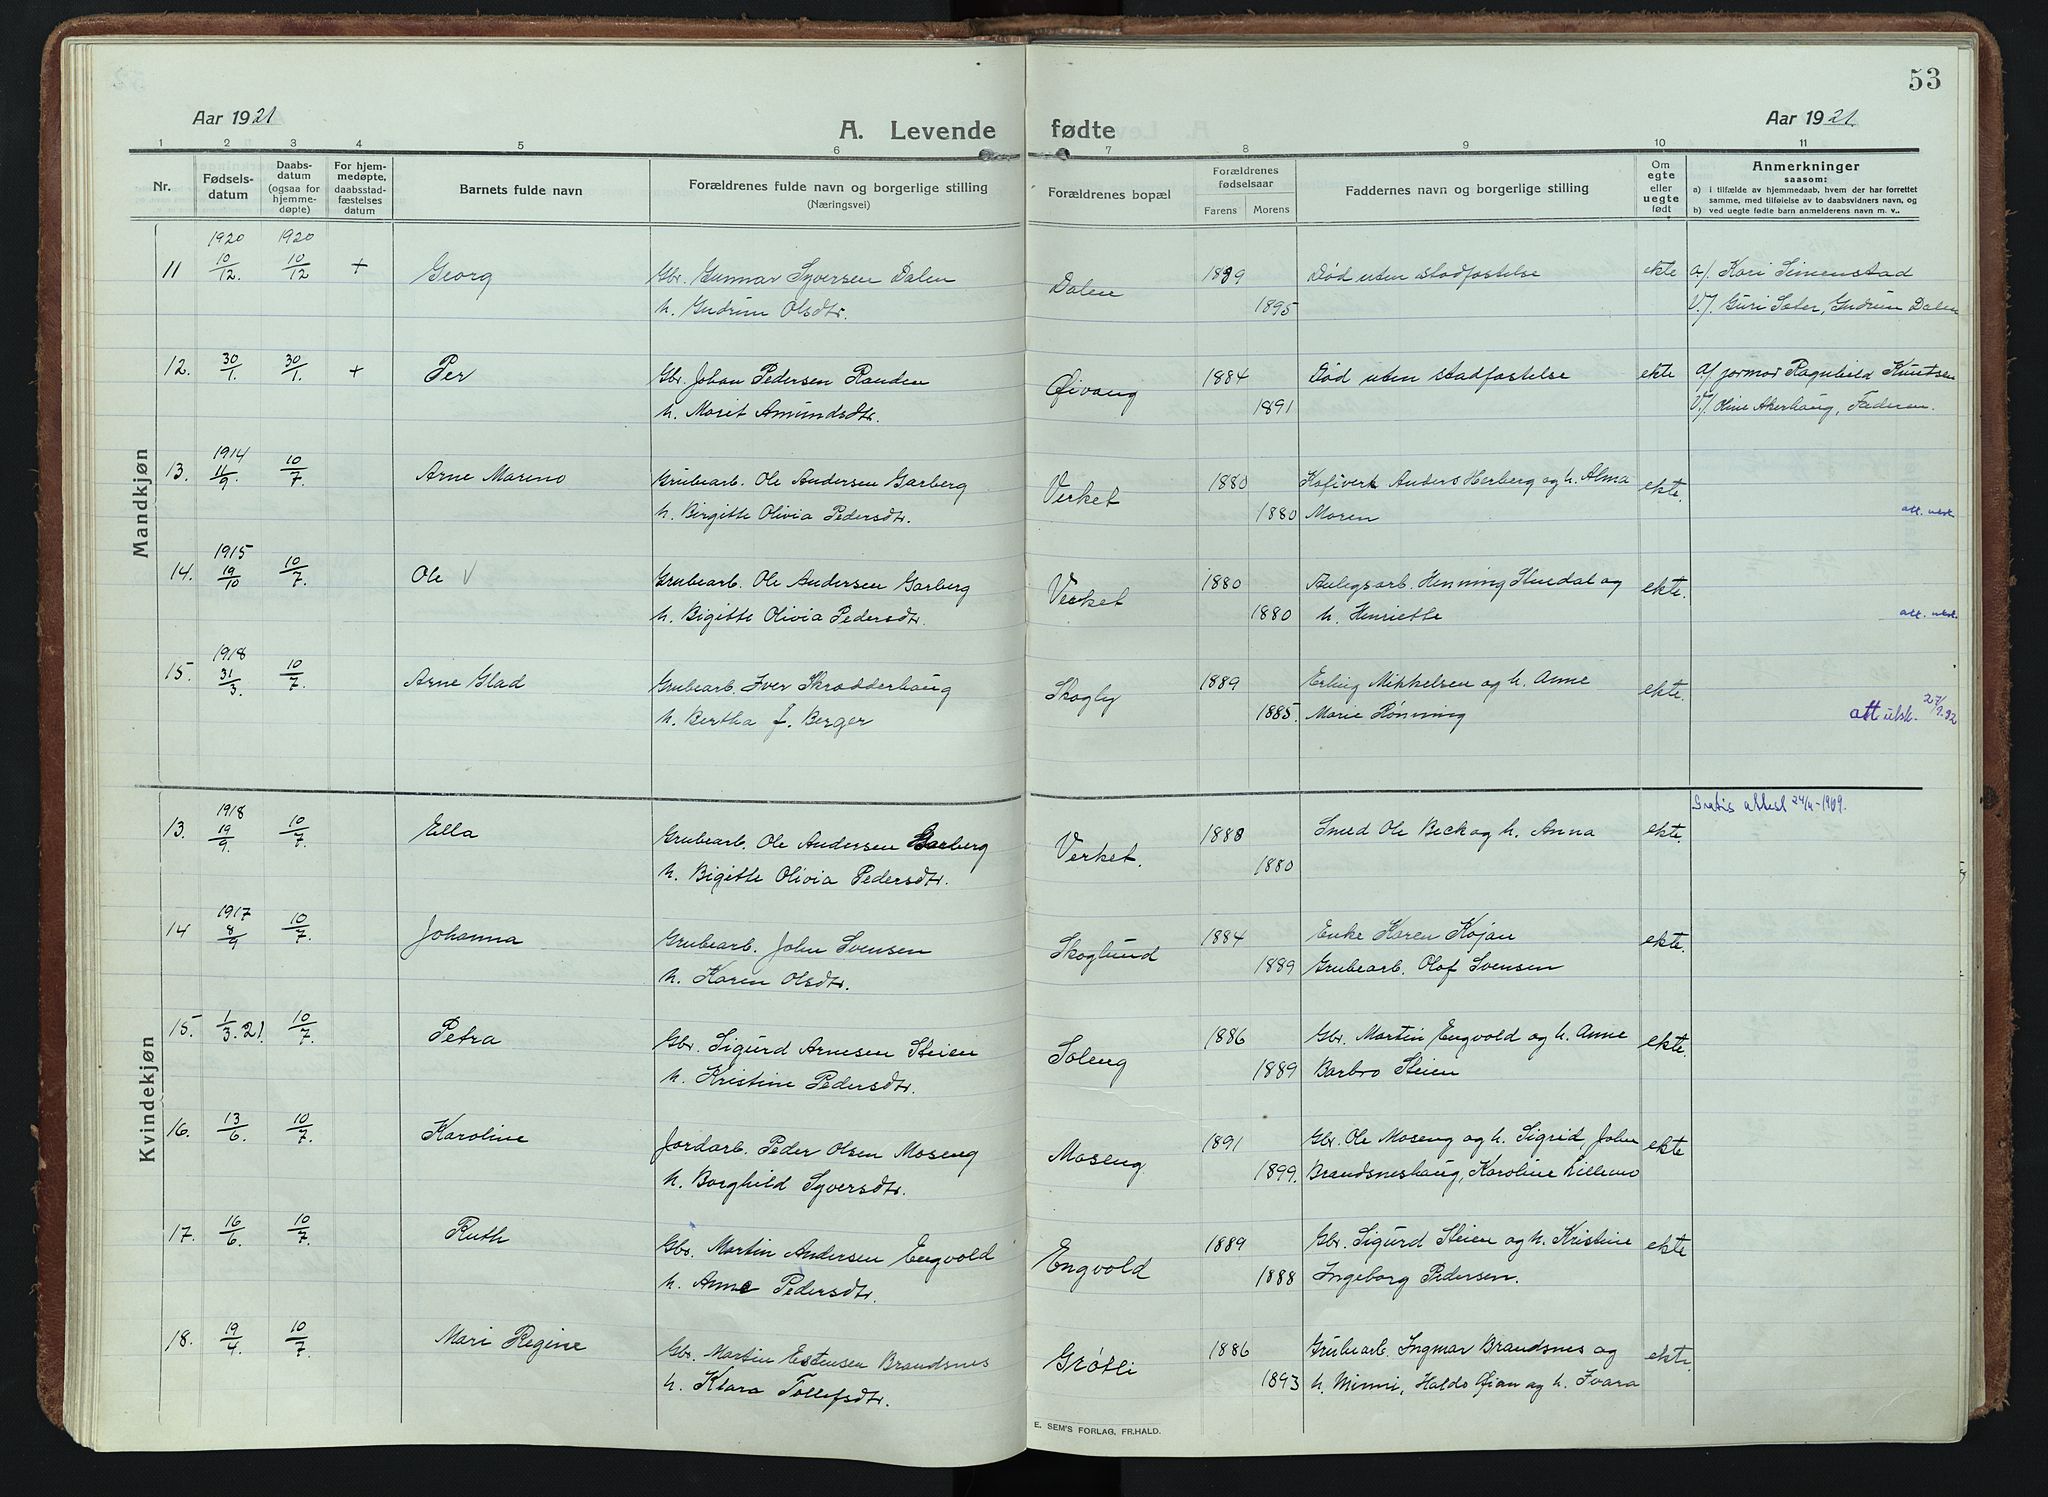 53
Aar 1921
A. Levende fødte
Aar 1921
1 2 3 4 5 6 7 8 9 10 11
Nr.
Fødsels-
datum
Daabs-
datum
(ogsaa for
hjemme-
døpte)
For hjem-
medøpte,
daabsstad-
fæstelses
datum
Barnets fulde navn
Forældrenes fulde navn og borgerlige stilling
(Næringsvei)
Forældrenes bopæl
Forældrenes
fødselsaar
Farens Morens
Faddernes navn og borgerlige stilling
Om
egte
eller
uegte
født
Anmerkninger
saasom:
a) i tilfælde av hjemmedaab, hvem der har forrettet
samme, med tilføielse av to daabsvidners navn, og
b) ved uegte fødte barn anmelderens navn m. v..
Mandkjøn
1920 1920
11 10/12. 10/12 + Georg Gbr. Gunnar Syversen Dalen Dalen 1889 Død uten stadfæstelse ekte a/. Kari Simenstad
h. Gudrun Olsdtr. 1895 V/. Guri Sæter, Gudrun Dalen
12. 30/1. 30/1. + Per Gbr. Johan Pedersen Randen Øivang 1884 Død uten stadfæstelse ekte a/ jormor Ragnhild Knutsen
h. Marit Amundsdtr. 1891 V/. Oline Akerhaug, Faderen.
1914
13. 11/9. 10/7. Arne Mareno Grubearb. Ole Andersen Garberg Verket 1880 Anders Herberg og h. Alma ekte.
h. Birgitte Olivia Pedersdtr. 1880 Moren att. utst.
1915
14. 19/10 10/7. Ole √ Grubearb. Ole Andersen Garberg Verket 1880 Anlegsarb. Henning Stuedal og ekte.
h. Bigitte Olivia Pedersdtr. 1880 h. Henriette att. utst.
1918
15. 31/3. 10/7. Arne Glad Grubearb. Iver Skradderhaug Skogly 1889 Erling Mikkelsen og h. Anne ekte.
h. Bertha f. Berger 1885. Marie Rønning att utst.
Kvindekjøn
Gratis attest
1918
13. 19/9. 10/7. Ella Grubearb. Ole Andersen Garberg Verket. 1880 Smed Ole Beck og h. Anna ekte.
h. Bigitte Olivia Pedersdtr. 1880
1917
14 8/9 10/7. Johanna Grubearb. John Svensen Skoglund 1884 Enke Karen Kojan ekte.
h. Karen Olsdtr. 1889 Grubearb. Olof Svensen
15. 1/3. 21 10/7. Petra Gbr. Sigurd Arnesen Steien Soleng 1886 Gbr. Martin Engvold og h. Anne ekte.
h. Kristine Pedersdtr. 1889 Barbro Steien
16. 13/6. 10/7. Karoline Jordarb. Peder Olsen Moseng Moseng 1891 Gbr. Ole Moseng og h. Sigrid, John ekte
h. Borghild Syversdtr. 1899. Brandsneshaug, Karoline Lillemo
17. 16/6 10/7. Ruth Gbr. Martin Andersen Engvold Engvold 1889 Gbr. Sigurd Steien og h. Kristine ekte
h. Anne Pedersdtr. 1888 Ingeborg Pedersen.
18. 19/4. 10/7. Mari Regine Gbr. Martin Estensen Brandsnes Grøtli 1886 Grubearb. Ingmar Brandsnes og ekte.
h. Klara Tollefsdtr. 1893 h. Minni, Haldo Øian og h. Ivara
E. SEM'S FORLAG, FR.HALD.